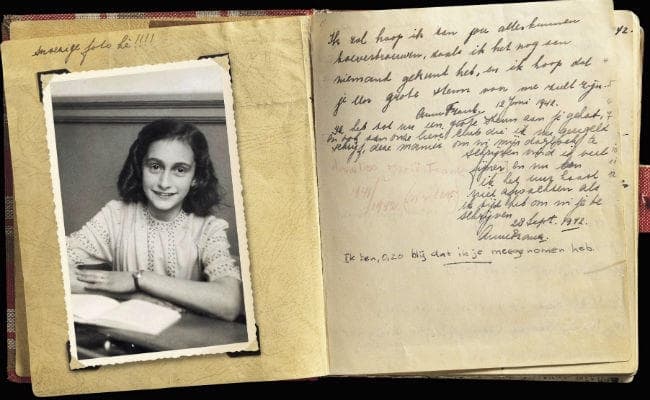 snoezige foto hé!!!!
Ik zal hoop ik aan jou alles kunnen
toevertrouwen, zoals ik het nog aan
niemand gekund heb, en ik hoop dat
je een grote steun voor me zult zijn.
Anne Frank. 12 Juni 1942.
Ik heb tot nu een grote steun aan je gehad,
en ook aan onze lieve club die ik nu geregeld
schrijf, deze manier om in mijn dagboek te
schrijven vind ik veel
fijner en nu kan
ik het uur haast
niet afwachten als
ik tijd heb om in je te
schrijven
28 Sept. 1942.
Anne Frank.
Ik ben, o, zo blij dat ik je meegenomen heb.
42.